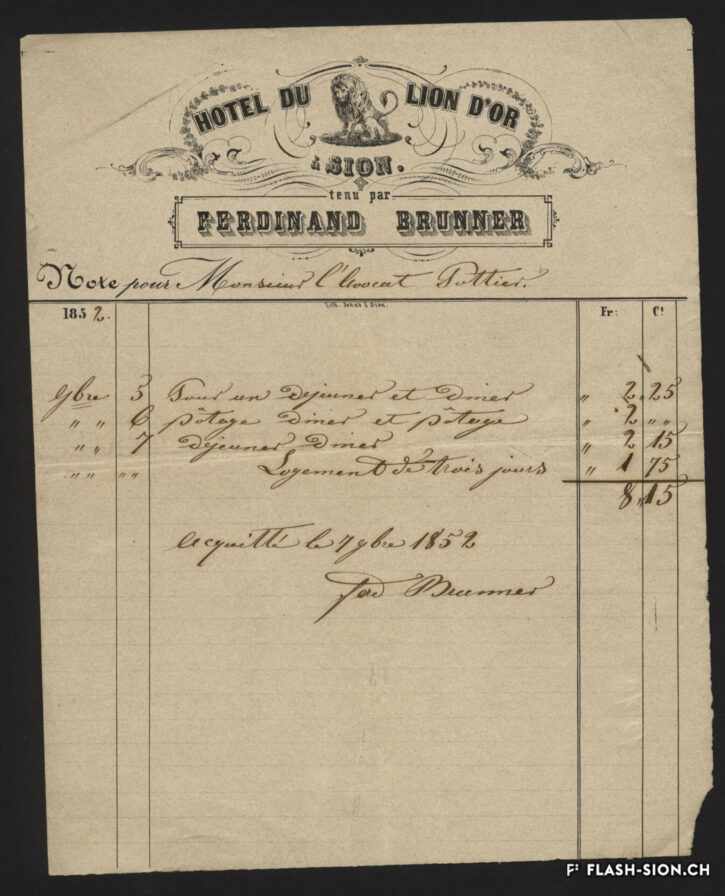 HOTEL DU LION D'OR
à SION.
tenu par
FERDINAND BRUNNER
Note pour Monsieur l'Avocat Pottier.
Lith.
1852. Fr: Ct
9bre 5 Pour un dejeuner et diner " 2 " 25
" " 6 pôtage diner et pôtage " 2 " "
" " 7 dejeuner diner " 2 15
" " " " Logement de trois jours " 1 75
8 " 15
Acquitté le 7 9bre 1852
ferd Brunner
FLASH-SION.CH